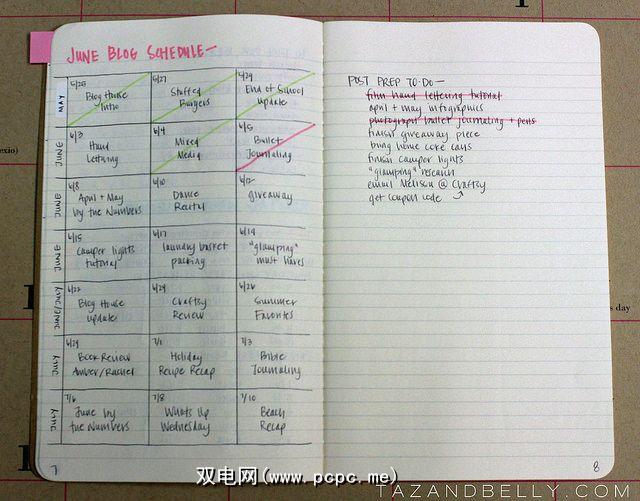 JUNE BLOG SCHEDULE—
MAY
5/25
Blog House
Intro
5/27
Stuffed
Burgers
5/29
End of School
update
JUNE
6/3
Hand
Lettering
6/4
Mixed
Media
6/5
Bullet
Journaling
JUNE
6/8
April + May
by the Numbers
6/10
Dance
Recital
6/12
giveaway
JUNE
6/15
camper lights
tutorial
6/17
laundry basket
packing
6/19
"glamping"
must haves
JUNE/JULY
6/22
Blog House
update
6/24
Craftsy
Review
6/26
Summer
Favorites
JULY
6/29
Book Review
Amber/Rachel
7/1
Holiday
Recipe Recap
7/3
Bible
Journaling
JULY
7/6
June by
the Numbers
7/8
Whats Up
Wednesday
7/10
Beach
Recap
7
POST PREP TO-DO—
film hand lettering tutorial
april + may infographics
photograph bullet journaling + pens
finish giveaway piece
bring home core cans
finish camper lights
"glamping" research
email Melissa @ Craftsy
get coupon code
8
exio)
s day
双电网(www.pcpc.me)
TAZANDBELLY.COM